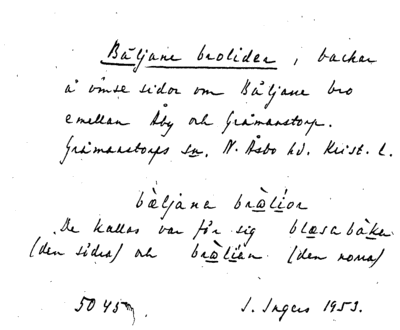 Båljane brolider, backar
å ömse sidor om Båljane bro
emellan Åby och Gråmanstorp.
Gråmanstorps sn. N. Åsbo hd. Krist. l.
bæljana brælior
De kallas var för sig blæsabàkar
(den södra) och brælian (den norra)
5045 J. Ingers 1953.